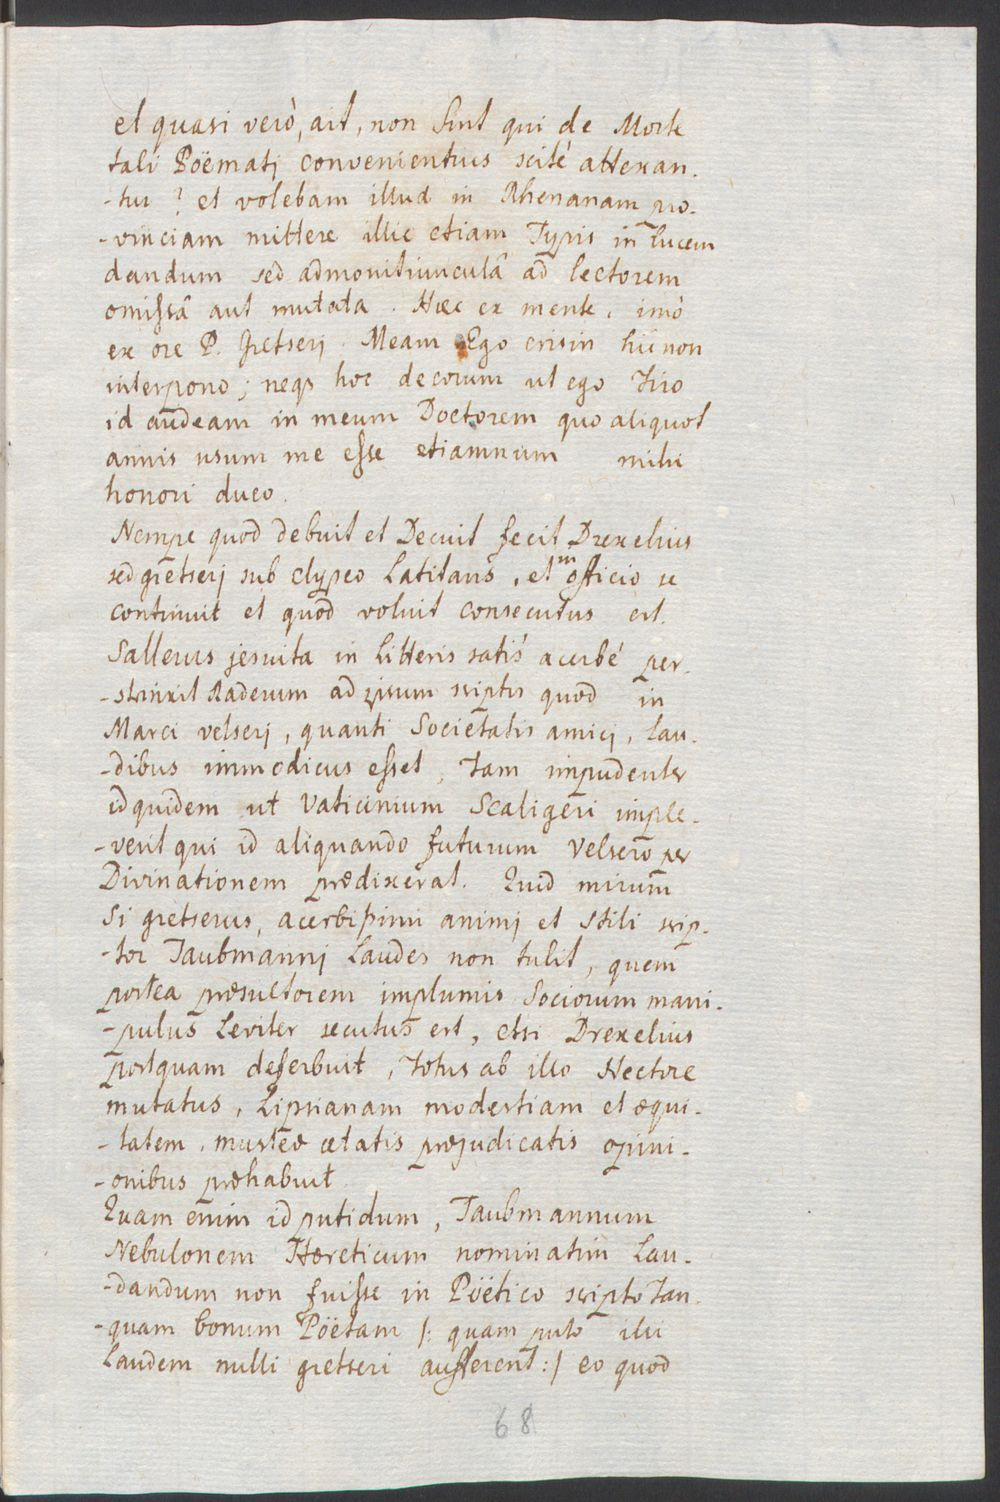 et quasi verò, ait, non sint qui de Morte
tali Poëmatj convenientius scité attexan-
-tur? et volebam illud in Rhenanam pro-
-vinciam mittere illic etiam Typis in lucem
dandum sed admonitiunculâ ad lectorem
omissâ aut mutata. Haec ex mente, imò
ex ore P. Gretserj. Meam Ego crisin hic non
interpono; neqs hoc decorum ut ego Tiro
id audeam in meum Doctorem quo aliquot
annis usum me esse etiamnum mihi
honori duco.
Nempe quod debuit et Decuit fecit Drexelius
sed gretserj sub clypeo Latitans, et in officio se
continuit et quod voluit consecutus est.
Sallerus jesuita in litteris satis acerbé per-
-strinxit Raderum ad ipsum scriptis quod in
Marci velserj, quanti Societatis amicj, lau-
-dibus immodicus esset, tam impudenter
id quidem ut Vaticinium Scaligeri imple-
-verit qui id aliquando futurum Velsero per
Divinationem praedixerat. Quid mirum
Si gretserus, acerbissimi animj et Stili scrip-
-tor Taubmannj Laudes non tulit, quem
postea praesultorem implumis Sociorum mani-
-pulus Leviter secutus est, etsi Drexelius
postquam deferbuit, totus ab illo Hectore
mutatus, Lipsianam modestiam et aequi-
-tatem, musteae aetatis praejudicatis opini-
-onibus praehabuit.
Quam enim id putidum, Taubmannum
Nebulonem Haereticum nominatim Lau-
-dandum non fuisse in Pöëtico scripto tan-
-quam bonum Poëtam /: quam puto illi
Laudem nulli gretseri aufferent :/ eo quod
68